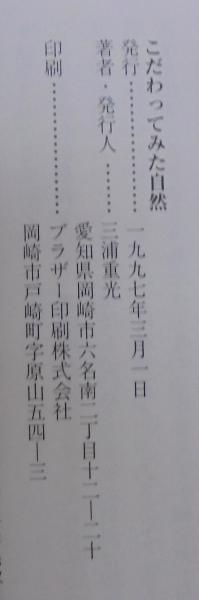 こだわってみた自然
発行………………一九九七年三月一日
著者・発行人………三浦重光
愛知県岡崎市六名南二丁目十二―二十
印刷………………ブラザー印刷株式会社
岡崎市戸崎町字原山五四―三